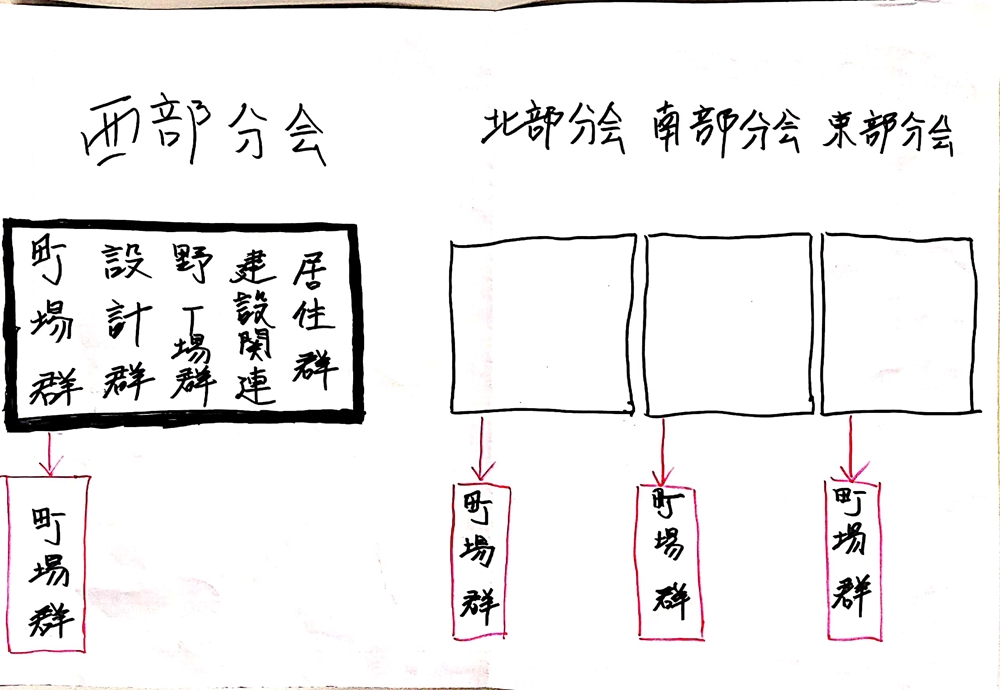 西部分会
北部分会
南部分会
東部分会
町場群
設計群
野丁場群
建設関連
居住群
町場群
町場群
町場群
町場群